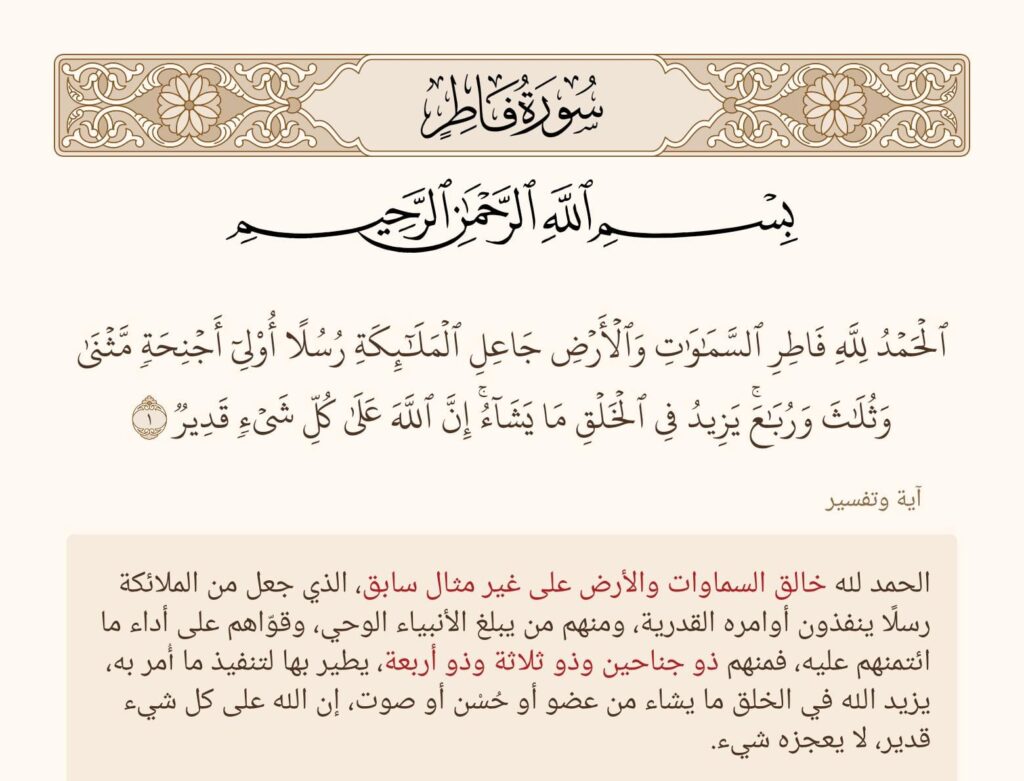 سُورَةُ فَاطِرٍ
بِسْمِ ٱللَّهِ ٱلرَّحْمَٰنِ ٱلرَّحِيمِ
ٱلْحَمْدُ لِلَّهِ فَاطِرِ ٱلسَّمَٰوَٰتِ وَٱلْأَرْضِ جَاعِلِ ٱلْمَلَٰٓئِكَةِ رُسُلًا أُو۟لِىٓ أَجْنِحَةٍ مَّثْنَىٰ
وَثُلَٰثَ وَرُبَٰعَ ۚ يَزِيدُ فِى ٱلْخَلْقِ مَا يَشَآءُ ۚ إِنَّ ٱللَّهَ عَلَىٰ كُلِّ شَىْءٍ قَدِيرٌ ١
آية وتفسير
الحمد لله خالق السماوات والأرض على غير مثال سابق، الذي جعل من الملائكة
رسلًا ينفذون أوامره القدرية، ومنهم من يبلغ الأنبياء الوحي، وقوّاهم على أداء ما
ائتمنهم عليه، فمنهم ذو جناحين وذو ثلاثة وذو أربعة، يطير بها لتنفيذ ما أمر به،
يزيد الله في الخلق ما يشاء من عضو أو حُسْن أو صوت، إن الله على كل شيء
قدير، لا يعجزه شيء.